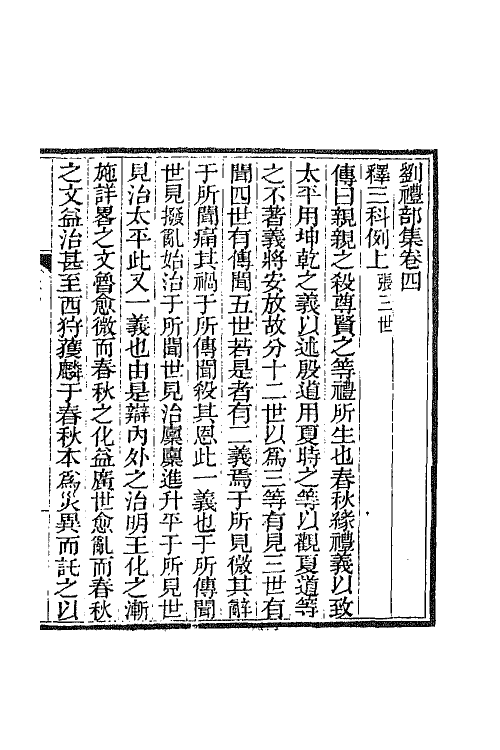 劉禮部集卷四
釋三科例上張三世
傳曰親親之殺尊賢之等禮所生也春秋緣禮義以致
太平用坤乾之義以述殷道用夏時之等以觀夏道等
之不著義將安放故分十二世以爲三等有見三世有
聞四世有傳聞五世若是者有二義焉于所見微其辭
于所聞痛其禍于所傳聞殺其恩此一義也于所傳聞
世見撥亂始治于所聞世見治廩廩進升平于所見世
見治太平此又一義也由是辯內外之治明王化之漸
施詳畧之文魯愈微而春秋之化益廣世愈亂而春秋
之文益治甚至西狩獲麟于春秋本爲災異而託之以